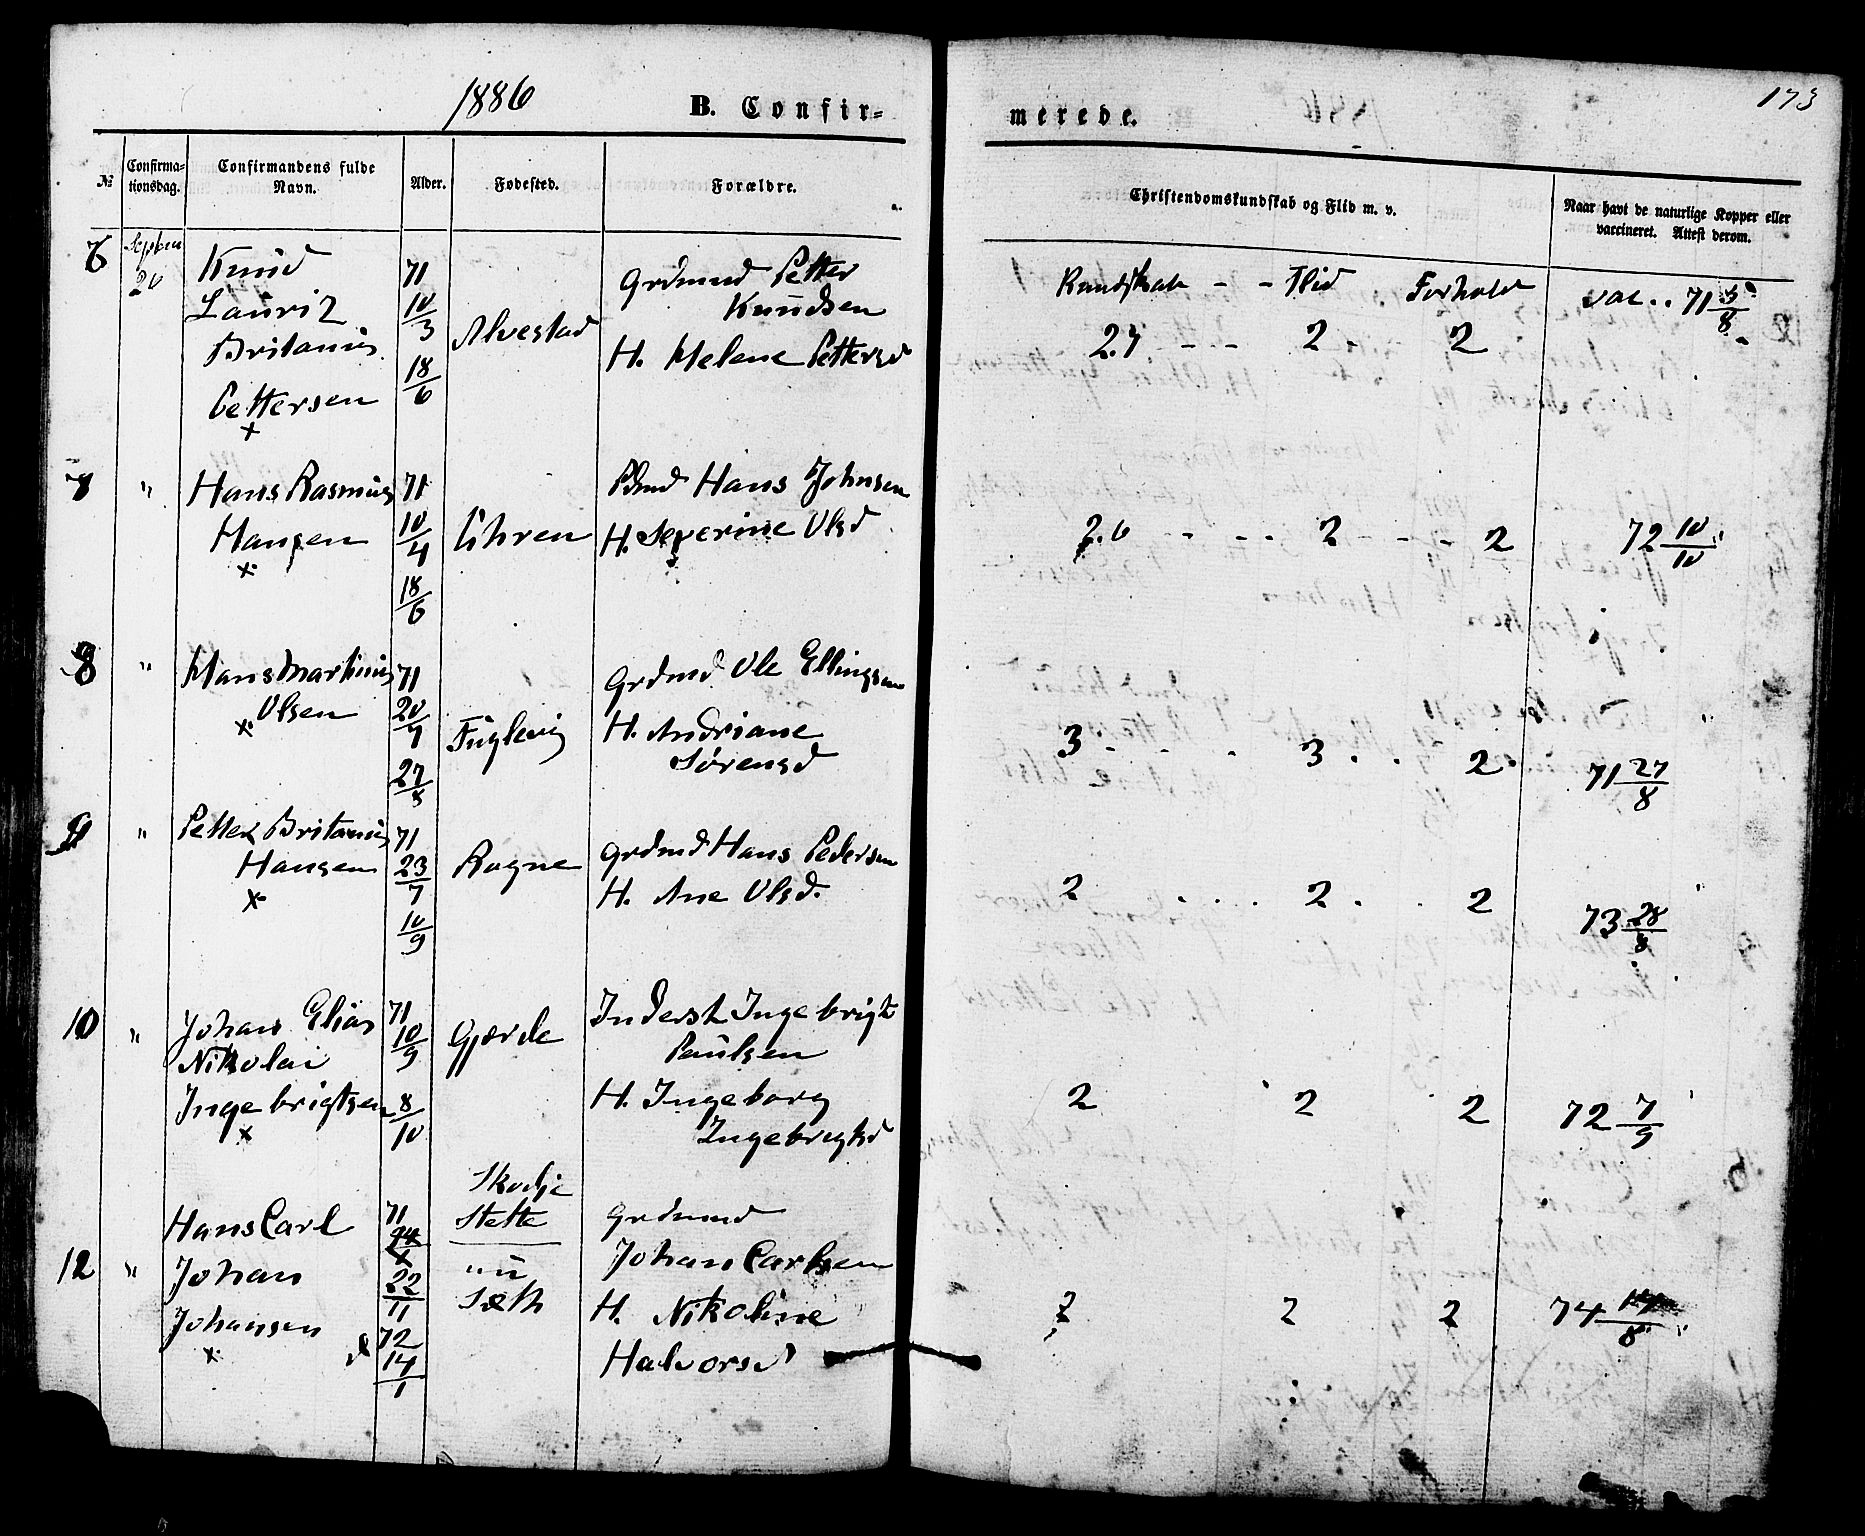 1886
B. Confir-
merede.
173
№
Confirma-
tionsdag.
Confirmandens fulde
Navn.
Alder.
Fødested.
Forældre.
Christendomskundskab og Flid m. v.
Naar havt de naturlige Kopper eller
vaccineret. Attest derom.
Kundskab - - Flid Forhold
6 20 Knud
Lauriz
Britanius
Pettersen
x
71
10/3
18/6
Alvestad
Grdmnd Petter
Knudsen
H. Helene Pettersd
2.4 - - - 2 - 2
vac .. 71 3/8
7 " Hans Rasmus
Hansen
x
71
10/4
18/6
Uhren
Hans Johnsen
H. Severine Olsd
2.6 - - - 2 - - - 2
72 10/10
8 " Hans Martinus
Olsen
x
71
20/7
27/8
Fuglevig
Grdmd Ole Ellingsen
H. Andriane
Sørensd
3 - - - 3 . . 2
71 27/8
9 " Petter Britanius
Hansen
x
71
23/7
10/9
Rogne
Grdmd Hans Pedersen
H. Ane Olsd.
2 . . . . 2 . . 2
73 28/8
10 " Johan Elias
Nikolai
Ingebrigtsen
x
71
10/9
8/10
Gjærde
Inderst Ingebrigt
Paulsen
H. Ingeborg
Ingebrigtsd
2 2 2
72 7/9
12 " Hans Carl
Johan
Johansen
x
71
22/11
72
14/1
Skodje
Stette
nu
Sæth
Grdmnd
Johan Carlsen
H. Nikoline
Halvorsd
2 2 2
74